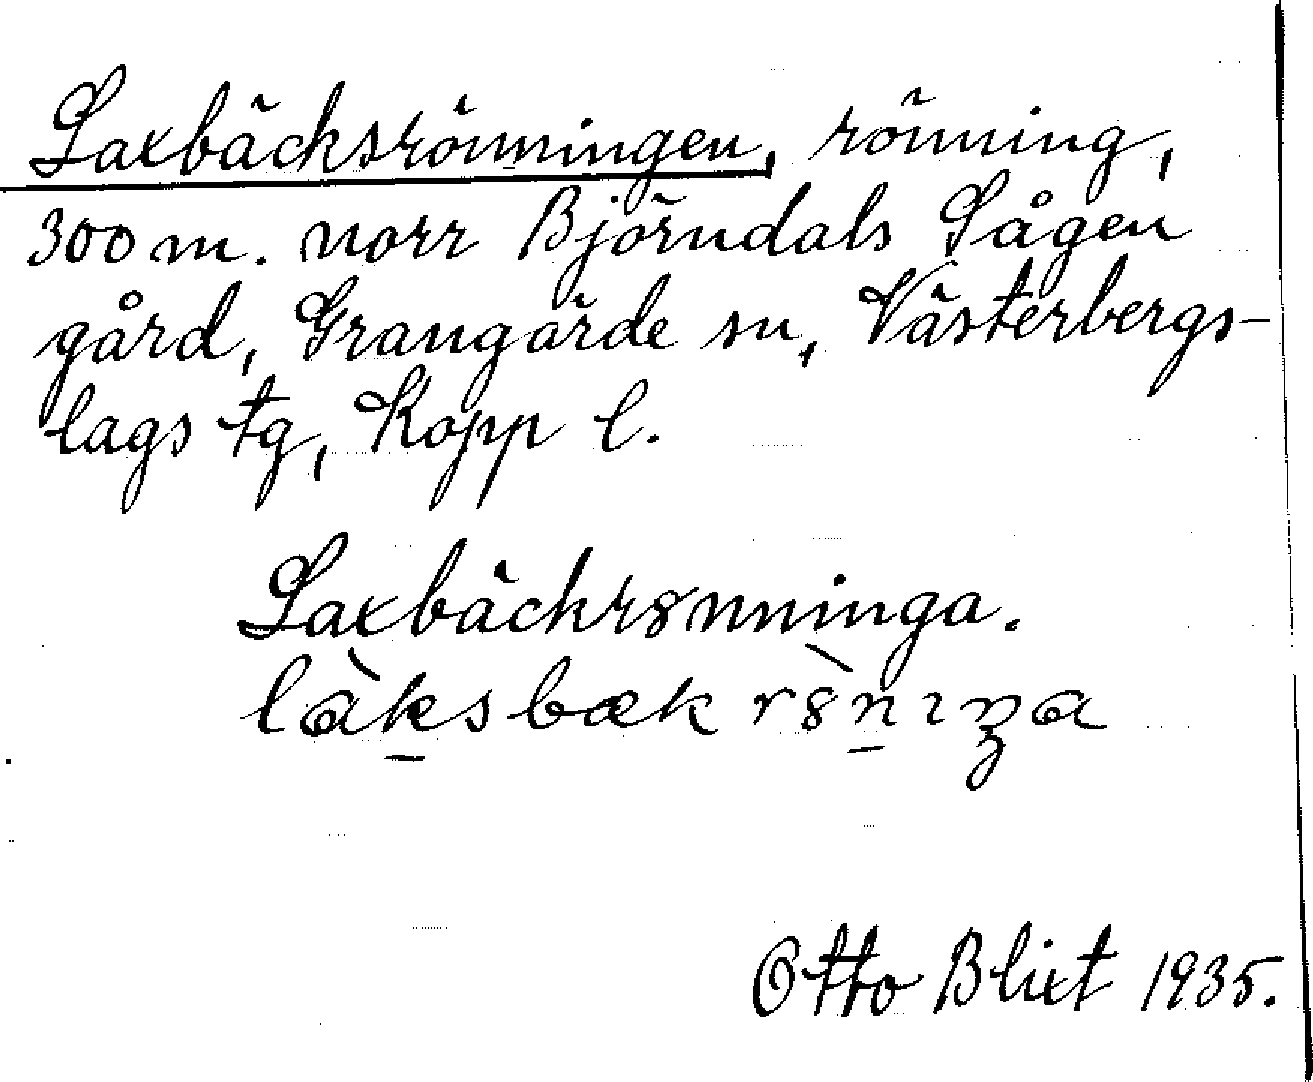 Laxbäcksrönningen, rönning,
300 m. norr Björndals Sågen
gård, Grangärde sn, Västerbergs-
lags tg, Kopp l.
Laxbäckr8nninga.
là̱ksbækr8̀ṉıŋa
Otto Blixt 1935.